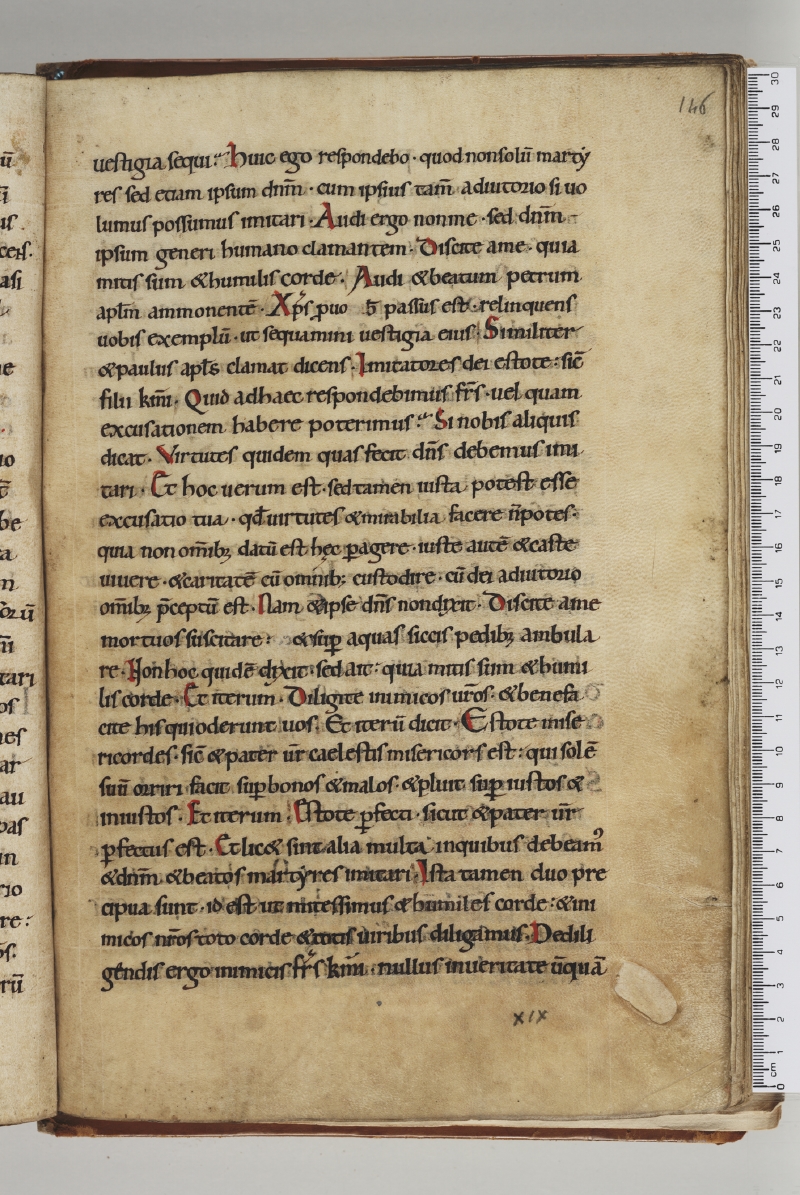 146
uestigia sequi? Huic ego respondebo · quod non solū marty
res sed etiam ipsum dn̄m · cum ipsius tam̄ adiutorio si uo
lumus possumus imitari · Audi ergo non me · sed dn̄m
ipsum generi humano clamantem · Discite a me · quia
mitis sum & humilis corde · Audi & beatum petrum
apl̄m ammonentē · Xp̄s p uo b̄ passus est · relinquens
uobis exemplū · ut sequamini uestigia eius · Similiter
& paulus apl̄s clamat dicens · Imitatores dei estote : sic̄
filii km̄i · Quid ad haec respondebimus fr̄s · uel quam
excusationem habere poterimus? Si nobis aliquis
dicat · Virtutes quidem quas fecit dn̄s debemus imi
tari · Et hoc uerum est · sed tamen iusta potest esse
excusatio tua · qđ uirtutes & mirabilia facere n̄ potes ·
quia non om̄ib; datū est hęc ꝑagere · iuste autē & caste
uiuere · & caritatē cū omnib; custodire · cū dei adiutorio
om̄ib; p̄ceptū est · Nam & ipse dn̄s non dixit · Discite a me
mortuos suscitare : & suꝑ aquas siccis pedib; ambula
re · Non hoc quidē dixit · sed ait : quia mitis sum & humi
lis corde · Et iterum · Diligite inimicos ur̄os · & benefa
cite his qui oderunt uos · Et iterū dicit · Estote mise
ricordes · sic̄ & pater ur̄ caelestis misericors est : qui solē
suū oriri facit suꝑ bonos & malos · & pluit suꝑ iustos &
iniustos · Et iterum · Estote ꝑfecti · sicut & pater ur̄
ꝑfectus est · Et lic& sint alia multa in quibus debeam᾽
& dn̄m & beatos martyres imitari · Ista tamen duo pre
cipua sunt · id est ut mitessimus & humiles corde : & ini
micos nr̄os toto corde & totis uiribus diligamus · De dili
gendis ergo inimicis fr̄s km̄i · nullus in ueritate ūquā
xix